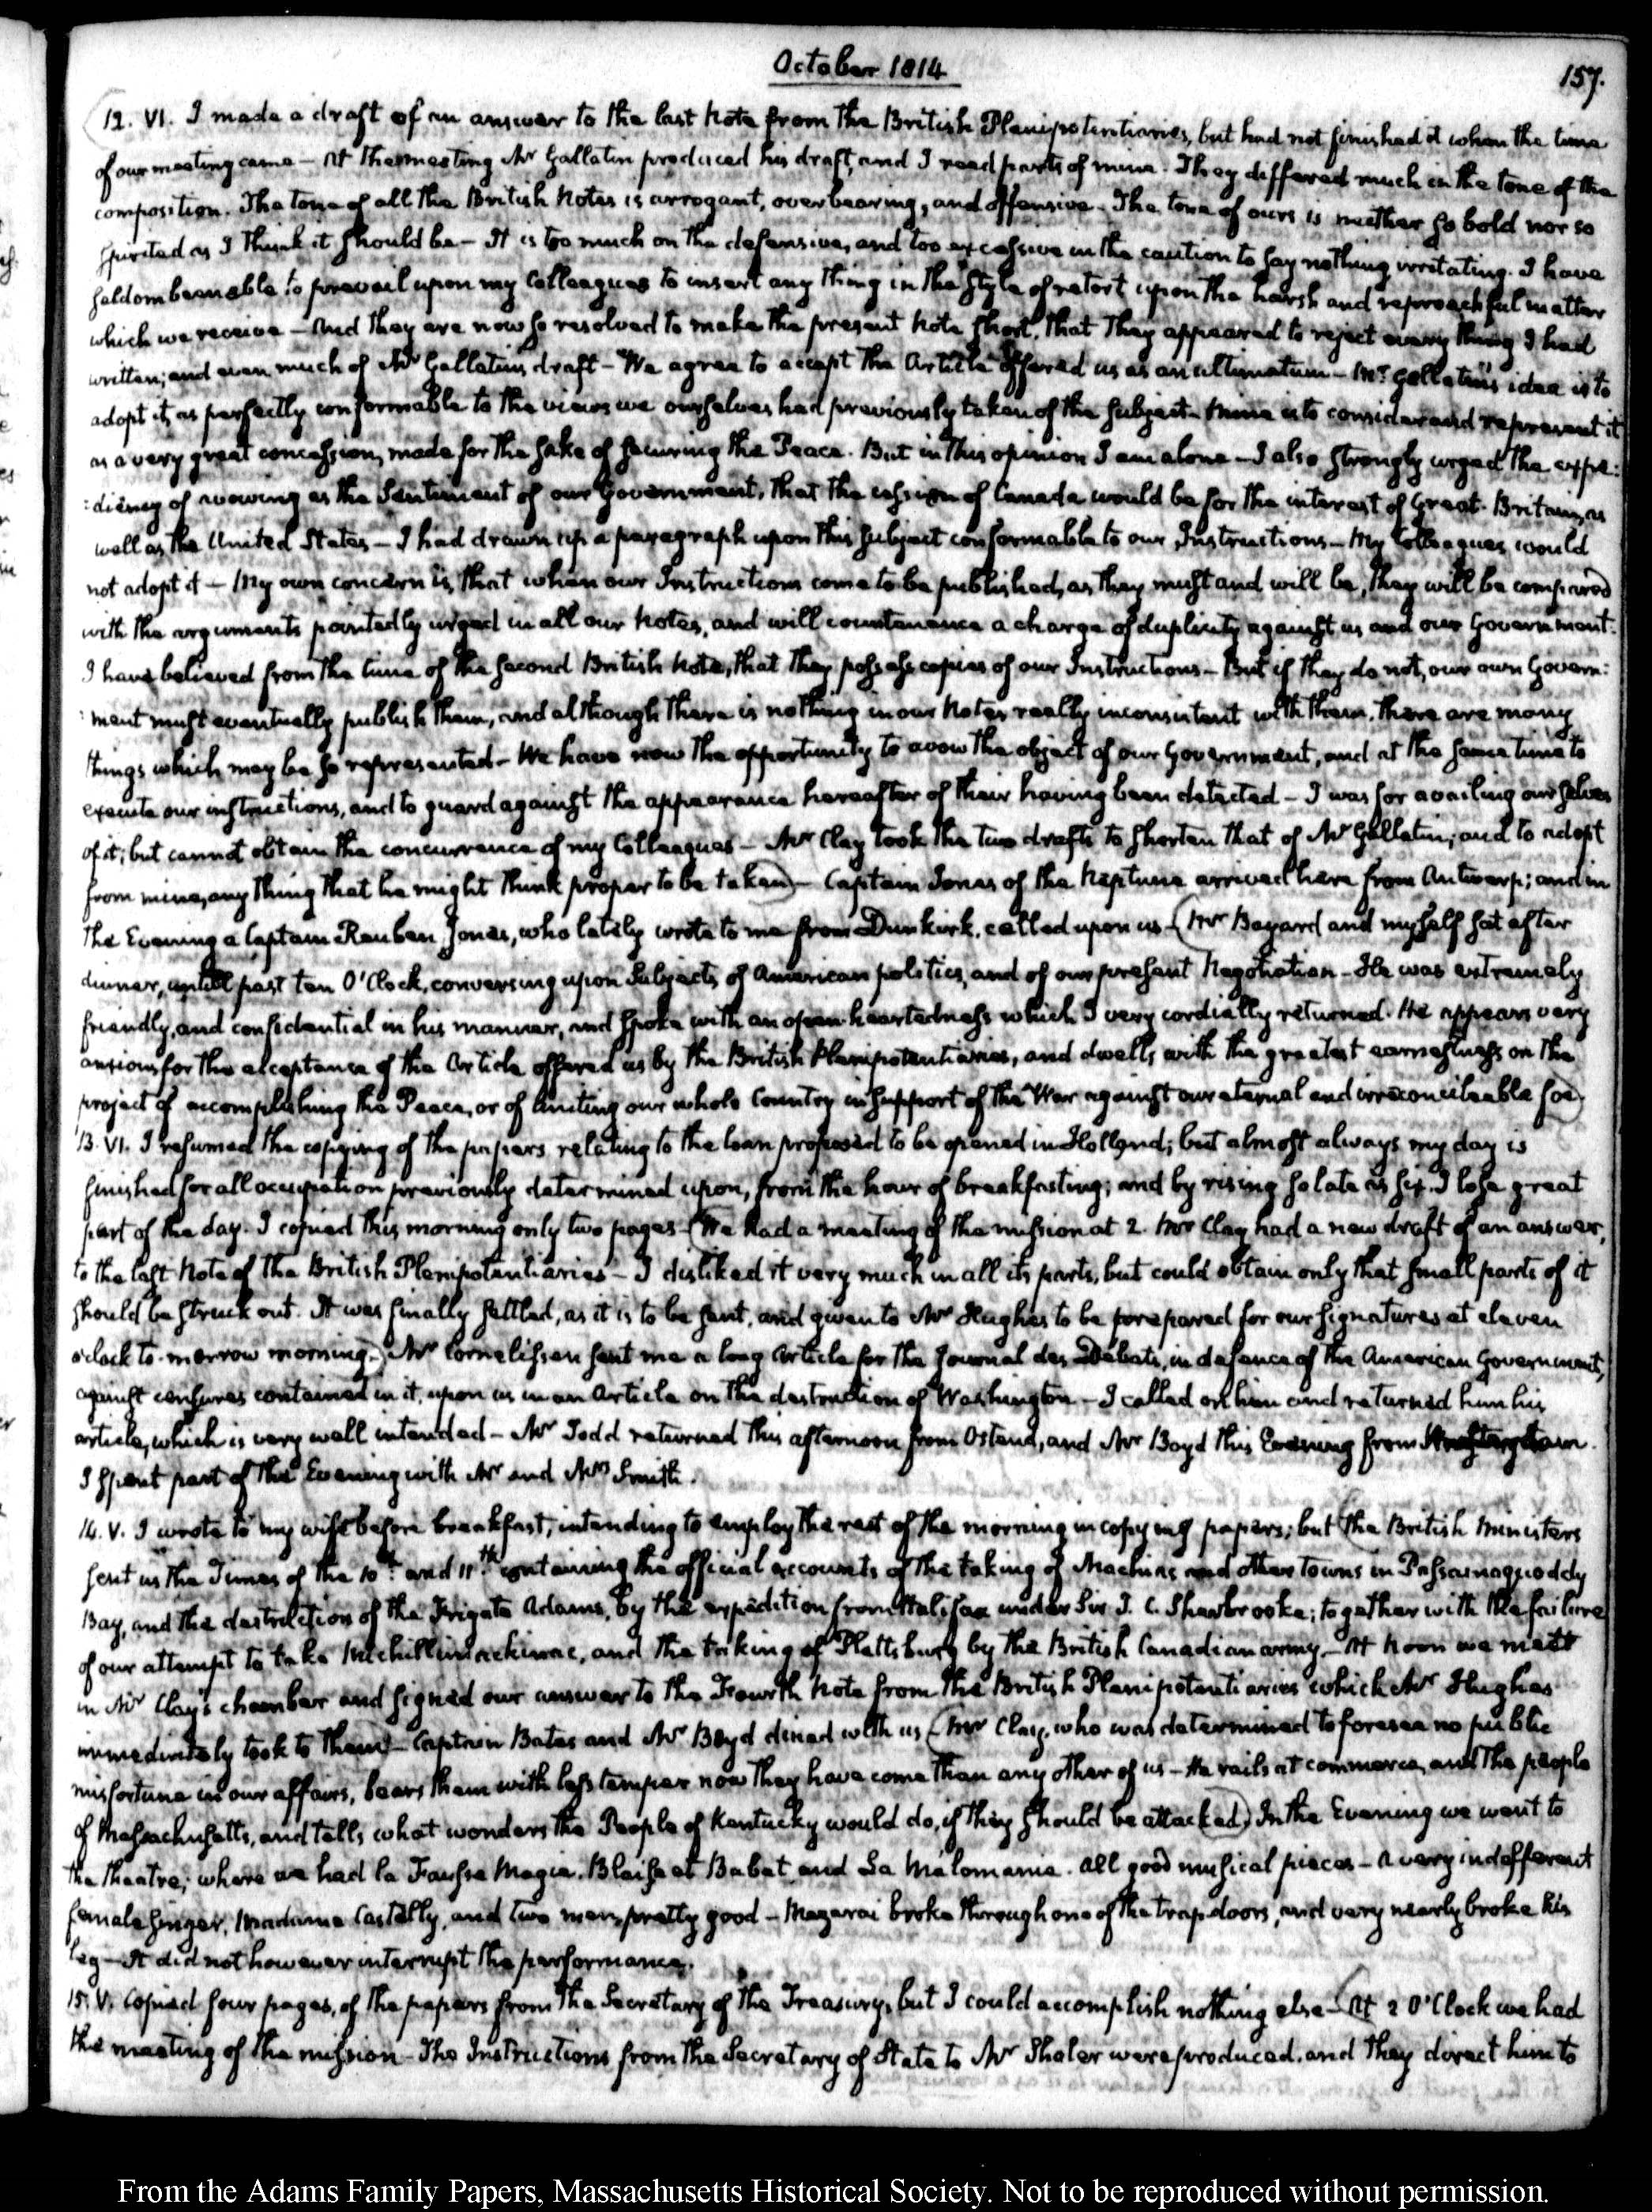 October 1814
157.
12. VI. I made a draft of an answer to the last Note from the British Plenipotentiaries, but had not finished it when the time
of our meeting came — At the meeting Mr Gallatin produced his draft, and I read parts of mine. They differed much in the tone of the
composition. The tone of all the British Notes is arrogant, overbearing, and offensive. The tone of ours is neither so bold nor so
spirited as I think it should be — It is too much on the defensive, and too excessive in the caution to say nothing irritating. I have
seldom been able to prevail upon my Colleagues to insert any thing in the style of retort upon the harsh and reproachful matter
which we receive — And they are now so resolved to make the present Note short, that they appeared to reject every thing I had
written; and even much of Mr Gallatin's draft — We agree to accept the Article offered us as an ultimatum — Mr Gallatin's idea is to
adopt it, as perfectly conformable to the views we ourselves had previously taken of the subject — Mine is to consider and represent it
as a very great concession, made for the sake of securing the Peace. But in this opinion I am alone — I also strongly urged the expe:
:diency of avowing as the Sentiment of our Government, that the cession of Canada would be for the interest of Great-Britain, as
well as the United States — I had drawn up a paragraph upon this subject conformable to our Instructions — My Colleagues would
not adopt it — My own concern is, that when our Instructions come to be published, as they must and will be, they will be compared
with the arguments pointedly urged in all our Notes, and will countenance a charge of duplicity against us and our Government.
I have believed from the time of the second British Note, that they possess copies of our Instructions — But if they do not, our own Govern:
:ment must eventually publish them, and although there is nothing in our Notes really inconsistent with them, there are many
things which may be so represented — We have now the opportunity to avow the object of our Government, and at the same time to
execute our instructions, and to guard against the appearance hereafter of their having been detected — I was for availing ourselves
of it; but cannot obtain the concurrence of my Colleagues — Mr Clay took the two drafts to shorten that of Mr Gallatin; and to adopt
from mine, any thing that he might think proper to be taken) — Captain Jones of the Neptune arrived here from Antwerp; and in
the Evening a Captain Reuben Jones, who lately wrote to me from Dunkirk, called upon us — (Mr Bayard and myself sat after
dinner, untill past ten O'Clock, conversing upon Subjects of American politics, and of our present Negotiation — He was extremely
friendly, and confidential in his manner, and spoke with an open heartedness which I very cordially returned. He appears very
anxious for the acceptance of the Article offered us by the British Plenipotentiaries, and dwells with the greatest earnestness on the
project of accomplishing the Peace, or of uniting our whole Country in support of the War against our eternal and irreconcileable foe)
13. VI. I resumed the copying of the papers relating to the loan proposed to be opened in Holland; but almost always my day is
finished for all occupation previously determined upon, from the hour of breakfasting; and by rising so late as six. I lose great
part of the day. I copied this morning only two pages — (We had a meeting of the mission at 2. Mr Clay had a new draft of an answer,
to the last Note of the British Plenipotentiaries — I disliked it very much in all its parts, but could obtain only that small parts of it
should be struck out. It was finally settled, as it is to be sent, and given to Mr Hughes to be prepared for our signatures at eleven
o'clock to-morrow morning.) Mr Cornelissen sent me a long Article for the Journal des Débats, in defence of the American Government,
against censures contained in it, upon us in an Article on the destruction of Washington — I called on him and returned him his
article, which is very well intended — Mr Todd returned this afternoon from Ostend, and Mr Boyd this Evening from
I spent part of the Evening with Mr and Mrs Smith.
14. V. I wrote to my wife before breakfast, intending to employ the rest of the morning in copying papers; but (the British Ministers
sent us the Times of the 10th. and 11th. containing the official accounts of the taking of Machias and other towns in Passamaquoddy
Bay, and the destruction of the Frigate Adams, by the expedition from Halifax under Sir J. C. Sherbrooke; together with the failure
of our attempt to take Michillimackinac, and the taking of Plattsburg by the British Canadian army. — At Noon we mett
in Mr Clay's chamber and signed our answer to the Fourth Note from the British Plenipotentiaries which Mr Hughes
immediately took to them) — Captain Bates and Mr Boyd dined with us (Mr Clay, who was determined to foresee no public
misfortune in our affairs, bears them with less temper now they have come than any other of us — He rails at commerce, and the people
of Massachusetts, and tells what wonders the People of Kentucky would do, if they should be attacked.) In the Evening we went to
the theatre; where we had la Fausse Magie, Blaise et Babet, and La Mélomanie. All good musical pieces — A very indifferent
female singer, Madame Castelly, and two men pretty good — Mazarai broke through one of the trap doors, and very nearly broke his
leg — It did not however interrupt the performance.
15. V. Copied four pages, of the papers from the Secretary of the Treasury, but I could accomplish nothing else — (At 2 O'Clock we had
the meeting of the mission — The Instructions from the Secretary of State to Mr Shaler were produced, and they direct him to
From the Adams Family Papers, Massachusetts Historical Society. Not to be reproduced without permission.